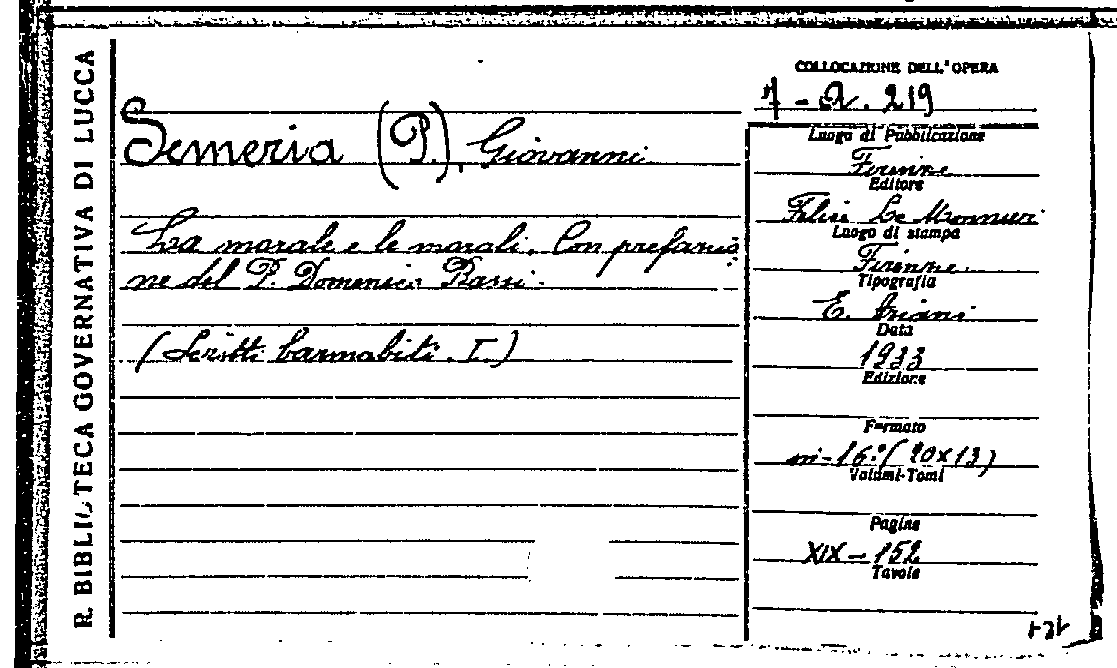 R. BIBLIOTECA GOVERNATIVA DI LUCCA
Semeria (P.), Giovanni
La morale e le morali. Con prefazio=
ne del P. Domenico Bassi.
(Scritti barnabiti. I.)
COLLOCAZIONE DELL'OPERA
219
Luogo di Pubblicazione
Firenze
Editore
Felice Le Monnier
Luogo di stampa
Firenze
Tipografia
E. Ariani
Data
1933
Edizione
Formato
in-16º (20x13)
Volumi-Tomi
Pagine
XIX-152
Tavole